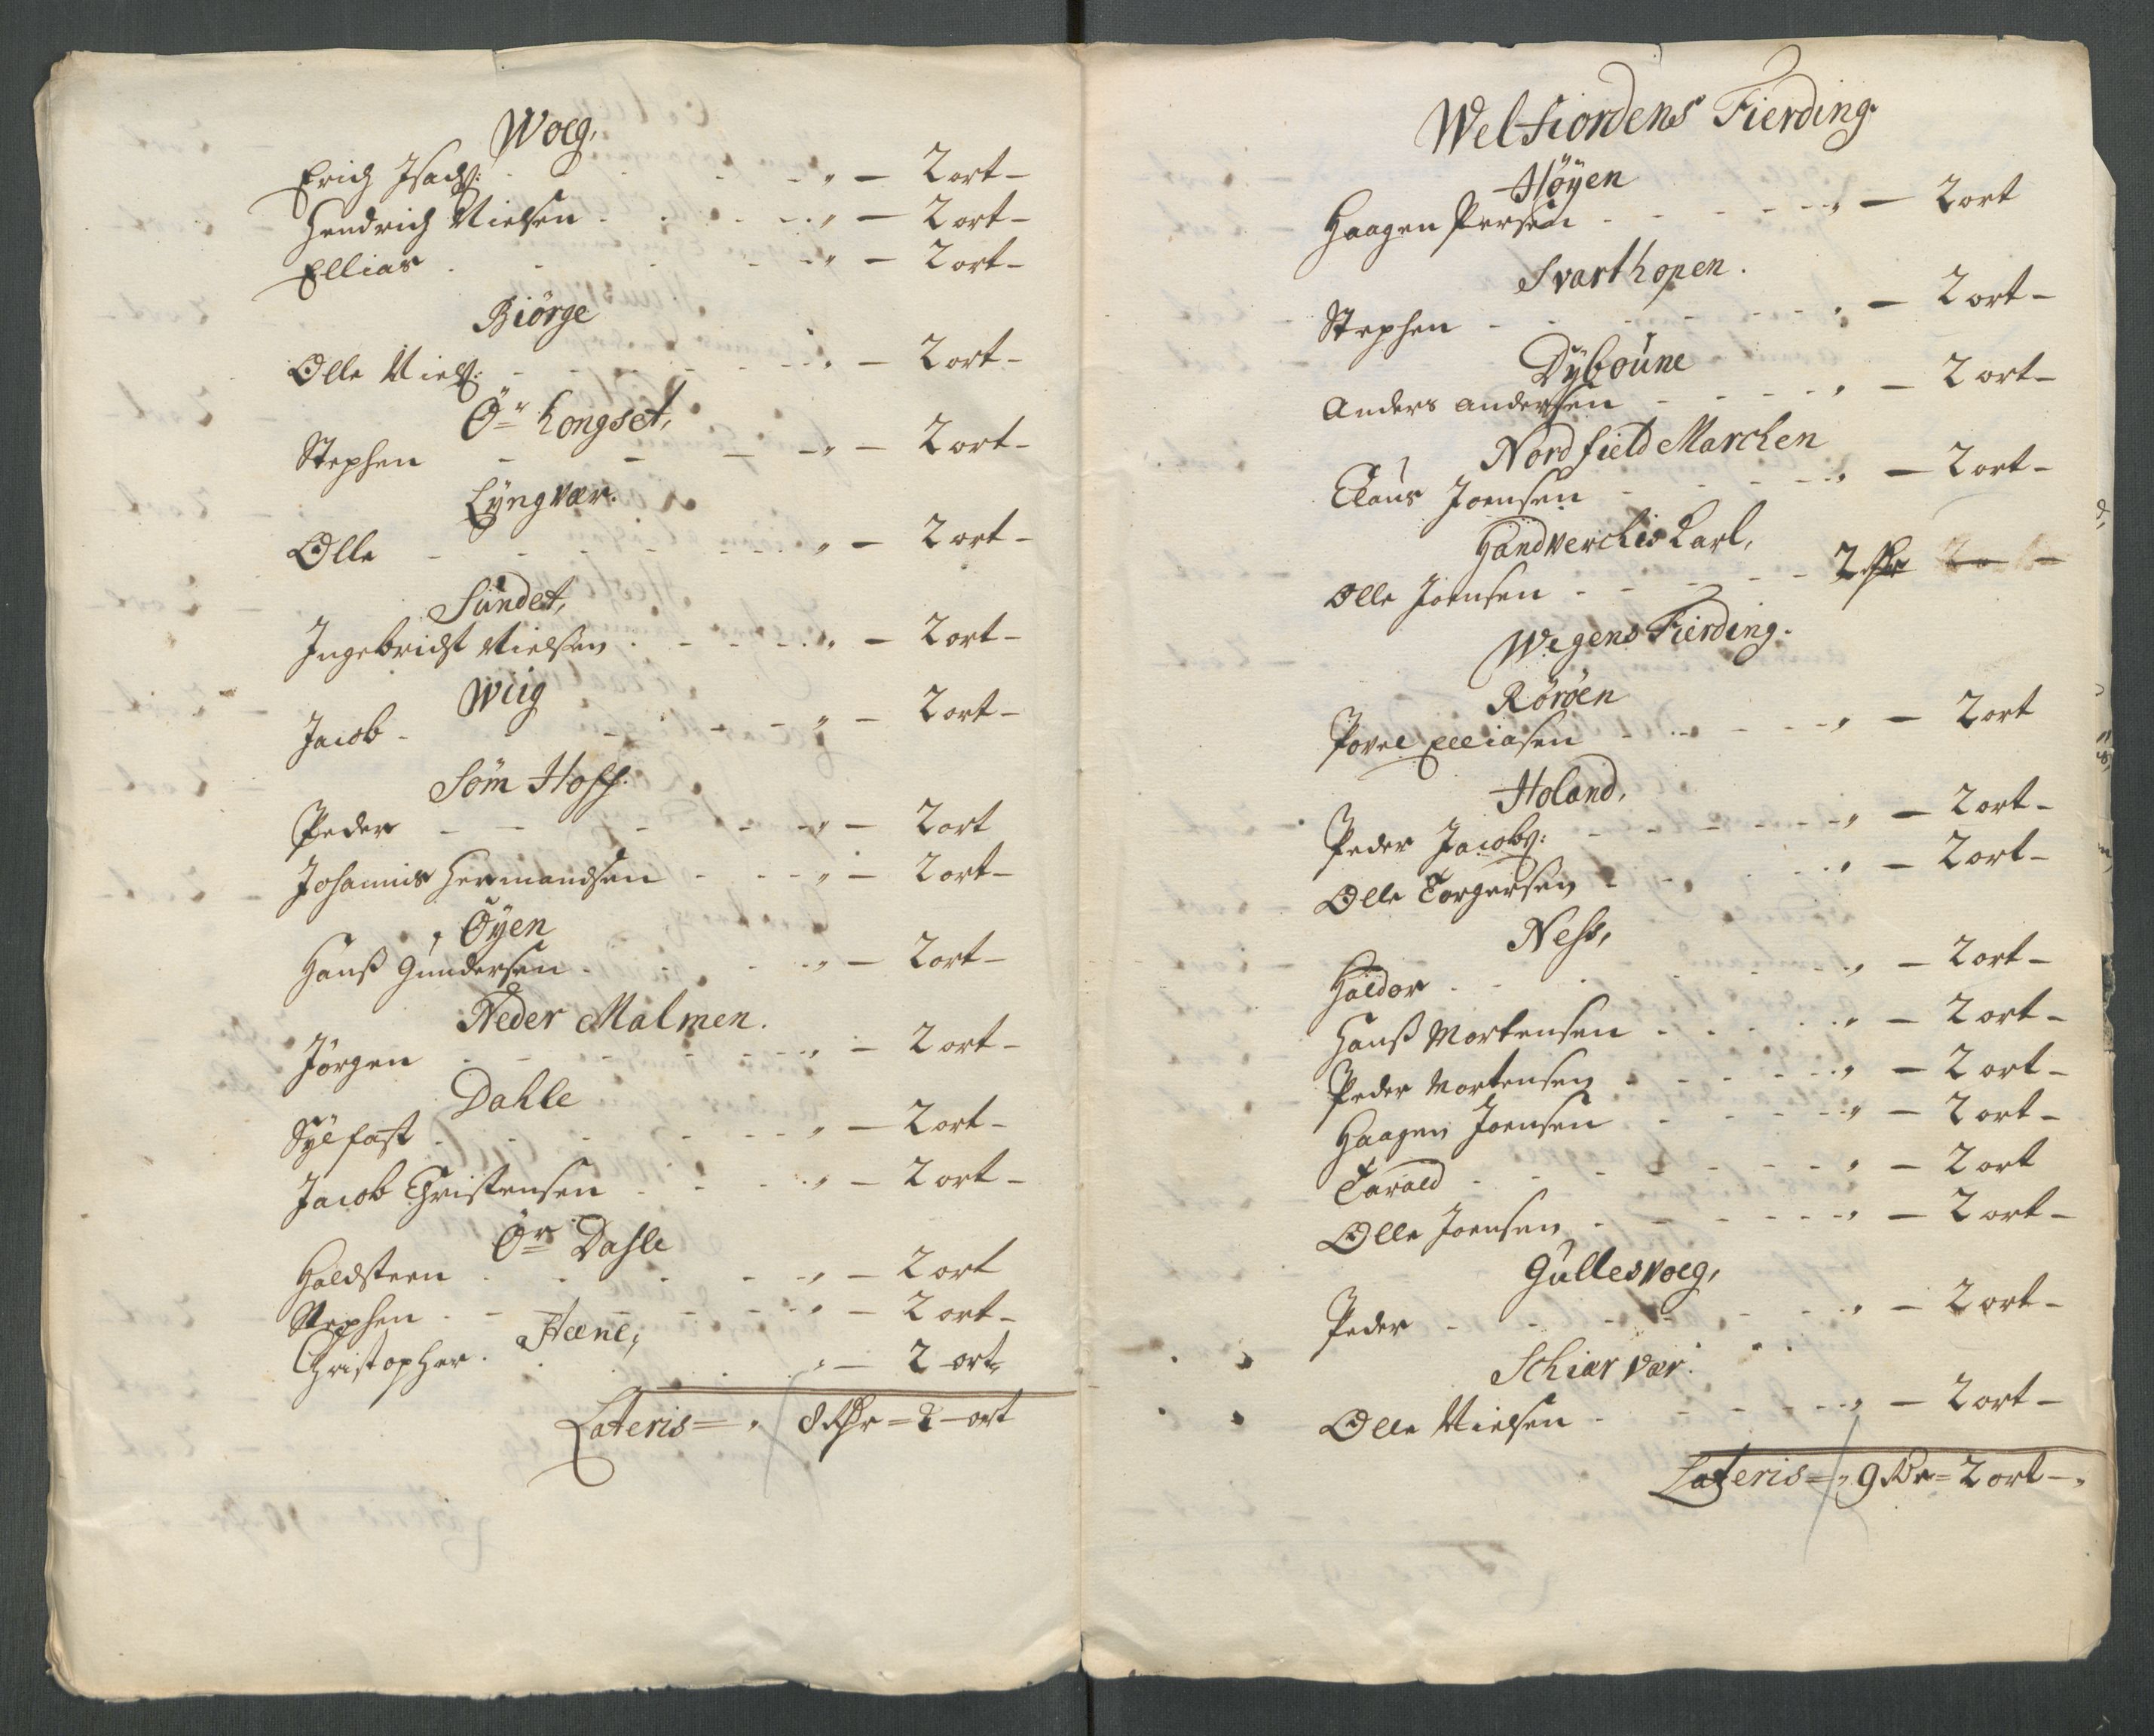 Woeg,
Erich Isachs: - - - " — 2 ort -
Hendrich Nielsen - - - " — 2 ort -
Ellias - - - " — 2 ort -
Biörge
Olle Niels: - - - " — 2 ort -
Ör Longset,
Stephen - - - " — 2 ort -
Lyngvær.
Olle - - - " — 2 ort -
Sundet,
Ingebricht Nielsen - - - " — 2 ort -
Wiig
Jacob - - - " — 2 ort -
Söm Hoff.
Peder - - - " — 2 ort
Johannis Hermandsen - - - " — 2 ort -
Öyen
Hanß Gundersen - - - " — 2 ort -
Neder Malmen.
Jörgen - - - " — 2 ort -
Dahle
Sylfast - - - " — 2 ort -
Jacob Christensen - - - " — 2 ort -
Ör Dahle
Haldsteen - - - " — 2 ort
Stephen - - - " — 2 ort -
Heene,
Christopher - - - " — 2 ort
Lateris = " 8 Rdr = 2 ort
Welfiordens Fierding.
Höyen
Haagen Persen - - - " — 2 ort
Svarthopen.
Stephen - - - " — 2 ort -
Dyboune
Anders Andersen - - - " — 2 ort -
Nordfield Marchen
Claus Joensen - - - " — 2 ort -
Handverchis Karl,
Olle Joensen - - - 2 Rdr
Wegens Fierding.
Röröen
Povel Elliasen - - - " — 2 ort
Holand,
Peder Jacobs: - - - " — 2 ort -
Olle Torgersen - - - " — 2 ort -
Ness,
Haldor - - - " — 2 ort -
Hanß Mortensen - - - " — 2 ort -
Peder Mortensen - - - " — 2 ort -
Haagen Joensen - - - " — 2 ort -
Tarald - - - " — 2 ort
Olle Joensen - - - " — 2 ort -
Gullesvoeg,
Peder - - - " — 2 ort -
Schiærvær.
Olle Nielsen - - - " — 2 ort -
Lateris = " 9 Rdr = 2 ort - "